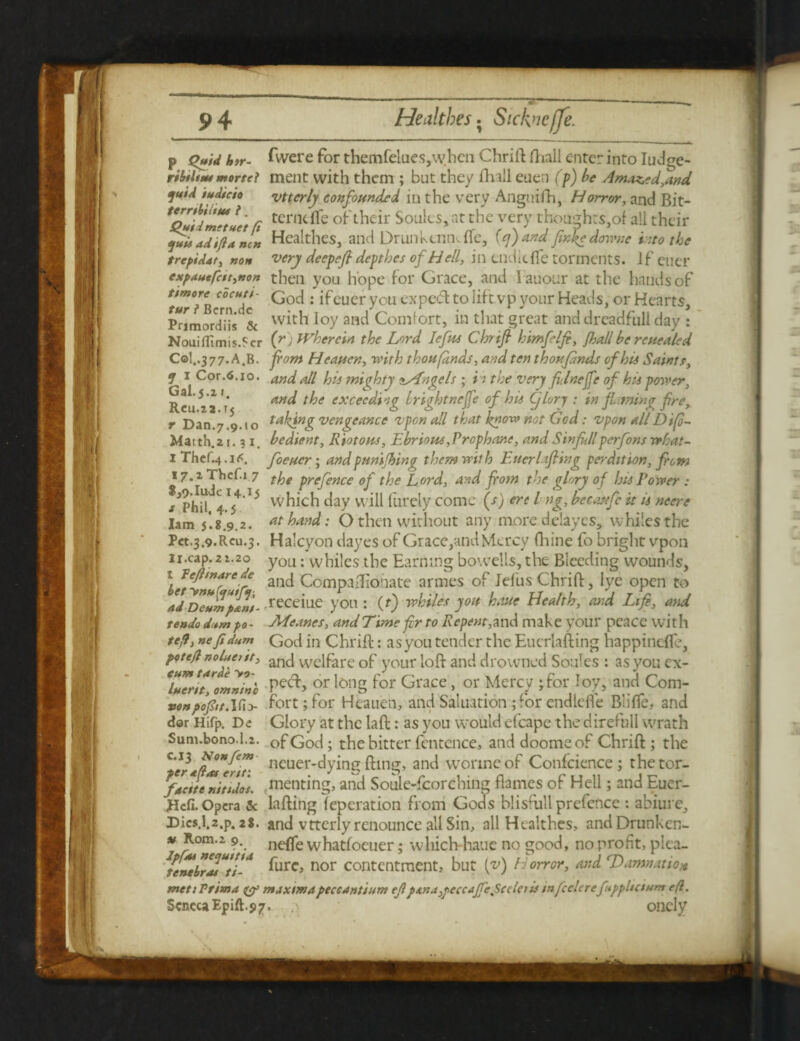 94 Healthes; Sicknesse.
ſwere for themſelues, when Chriſt ſhall enter into Iudge-
ment with them; but they ſhall euen (p) be Amazed, and
vtterly confounded in the very Anguiſh, Horror, and Bit-
terneſſe of their Soules, at the very thoughts, of all their
Healthes, and Drunkenneſſe, (q) and ſinke downe into the
very deepeſt depthes of Hell, in endleſſe torments. If euer
then you hope for Grace, and Fauour at the hands of
God: if euer you expect to lift vp your Heads, or Hearts,
with Ioy and Comfort, in that great and dreadfull day:
(r) Wherein the Lord Ieſus Chriſt himſelfe, ſhall be reuealed
from Heauen, with thouſands, and ten thouſands of his Saints,
and all his mighty Angels; in the very fulneſſe of his power,
and the exceeding brightneſſe of his Glory: in flaming fire,
taking vengeance vpon all that know not God: vpon all Diſo-
bedient, Riotous, Ebrious, Prophane, and Sinfull perſons what-
ſoeuer; and puniſhing them with Euerlaſting perdition, from
the preſence of the Lord, and from the glory of his Power:
which day will ſurely come (s) ere long, becauſe it is neere
at hand: O then without any more delayes, whiles the
Halcyon dayes of Grace, and Mercy ſhine ſo bright vpon
you: whiles the Earning bowells, the Bleeding wounds,
and Compaſſionate armes of Ieſus Chriſt, lye open to
receiue you: (t) whiles you haue Health, and Life, and
Meanes, and Time for to Repent, and make your peace with
God in Chriſt: as you tender the Euerlaſting happineſſe,
and welfare of your loſt and drowned Soules: as you ex-
pect, or long for Grace, or Mercy; for Ioy, and Com-
fort; for Heauen, and Saluation; for endleſſe Bliſſe, and
Glory at the laſt: as you would eſcape the direfull wrath
of God; the bitter ſentence, and doome of Chriſt; the
neuer-dying ſting, and worme of Conſcience; the tor-
menting, and Soule-ſcorching flames of Hell; and Euer-
laſting ſeperation from Gods blisfull preſence: abiure,
and vtterly renounce all Sin, all Healthes, and Drunken-
neſſe whatſoeuer; which haue no good, no profit, plea-
ſure, nor contentment, but (v) Horror, and Damnation
onely
p Quid hor-
ribilius morte?
quid iudicio
terribilius?
Quid metuet ſi
quis ad iſta non
trepidat, non
expaueſcit, non
timore cõcuti-
tur? Bern. de
Primordiis &
Nouiſſimis. Ser
Col. 377. A, B.
q 1 Cor. 6. 10.
Gal. 5. 21.
Reu. 22. 15
r Dan. 7. 9. 10
Matth. 21. 31.
1 Theſ. 4. 16.
17. 2 Theſ. 1 7
8, 9. Iude 14. 15
s Phil. 4. 5
Iam 5. 8. 9. 2.
Pet. 3. 9. Reu. 3.
11. cap. 22. 20
t Feſtinare de
bet vnuſquiſq;
ad Deum pœni-
tendo dum po-
teſt, ne ſi dum
poteſt noluerit,
cum tardè vo-
luerit, omninò
non poſsit. Iſio-
dor Hiſp. De
Sum. bono. l. 2.
c. 13 Non ſem-
per æſtas erit:
facite nitidos.
Heſi. Opera &
Dies, l. 2. p. 28.
v Rom. 2 9.
Ipſas nequitia
tenebras ti-
met: Prima & maxima peccantium eſt pœna, peccaſſe. Sceleris in ſcelere ſupplicium eſt.
Seneca Epiſt. 97.